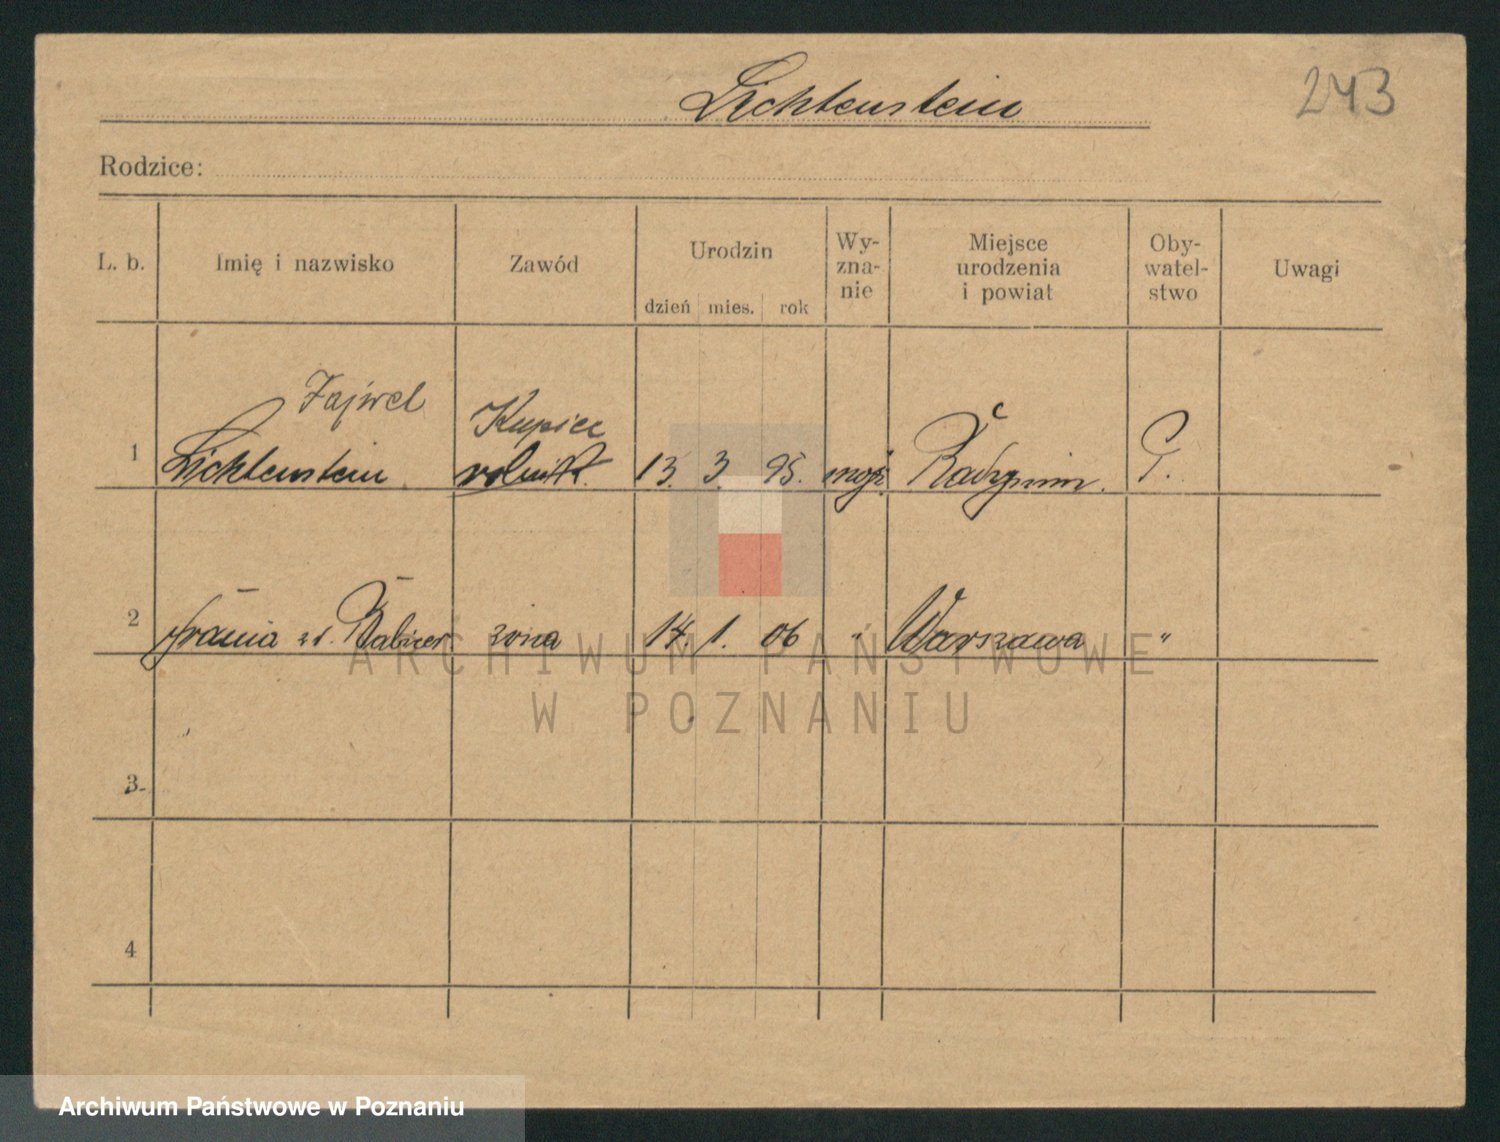 Lichtenstein
243
Rodzice:
L. b. Imię i nazwisko Zawód Urodzin dzień mies. rok Wy-zna-nie Miejsce urodzenia i powiat Oby-watel-stwo Uwagi
Fajwel Kupiec
1 Lichtenstein 13. 3. 95. mojż. Radzymin. P.
2 Frania żona 14. 1. 06 " Warszawa "
3
4
ARCHIWUM PAŃSTWOWE
W POZNANIU
Archiwum Państwowe w Poznaniu